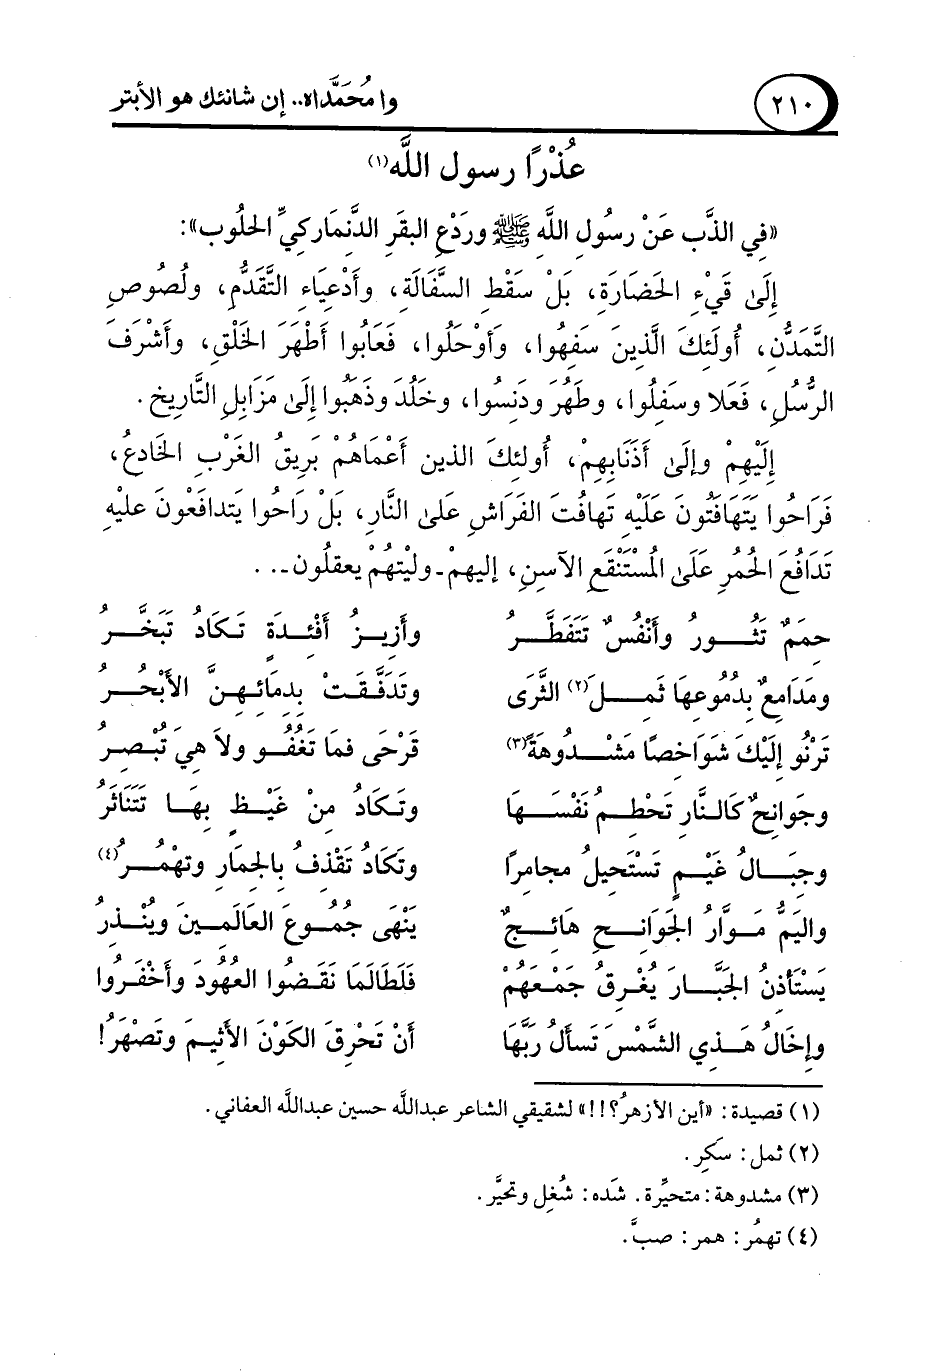 ٢١٠
وا مُحَمَّداه.. إن شانئك هو الأبتر
عُذْرًا رسول اللَّه(١)
«فِي الذَّب عَنْ رسُولِ اللَّهِ ﷺ ورَدْعِ البقَرِ الدَّنمَاركيِّ الحلُوب»:
إلَى قَيْءِ الحَضَارَةِ، بَلْ سَقْطِ السَّفَالَةِ، وأَدْعِيَاءِ التَّقَدُّمِ، ولُصُوصِ
التَّمَدُّنِ، أُولَئِكَ الَّذِينَ سَفِهُوا، وأَوْحَلُوا، فَعَابُوا أَطْهَرَ الخَلْقِ، وأَشْرَفَ
الرُّسُلِ، فَعَلا وسَفِلُوا، وطَهُرَ ودَنِسُوا، وخَلُدَ وذَهَبُوا إلَى مَزَابِلِ التَّارِيخِ.
إلَيْهِمْ وإلَى أَذْنَابِهِمْ، أُولئِكَ الذين أَعْمَاهُمْ بَرِيقُ الغَرْبِ الخَادِعُ،
فَرَاحُوا يَتَهَافَتُونَ عَلَيْهِ تهافُتَ الفَرَاشِ عَلَى النَّارِ، بَلْ رَاحُوا يَتدافَعُونَ عليْهِ
تَدَافُعَ الحُمُرِ عَلَى المُسْتَنْقَعِ الآسِنِ، إليهمْ ـ وليْتَهُمْ يعقلُون ـ . .
حِمَمٌ تَثُــورُ وأَنْفُسٌ تَتَفَطَّــرُ وأَزِيــزُ أَفْئِــدَةٍ تَــكَادُ تَبَخَّــرُ
ومَدَامِعٌ بِدُمُوعِهَا ثَمِــلَ(٢) الثَّرَى وتَدَفَّـقَـتْ بِدِمَائِـهِـنَّ الأَبْحُــرُ
تَرْنُو إلَيْكَ شَوَاخصًا مَشْــدُوهَةً(٣) قَرْحَى فمَا تَغْفُــو ولاَ هِيَ تُبْـصِرُ
وجَوانِحٌ كَالـنَّارِ تَحْطِــمُ نَفْسَــهَا وتَـكَادُ مِنْ غَيْــظٍ بِهَـا تَتَنَاثَرُ
وجِبَــالُ غَيْــمٍ تَسْتَحِيلُ مجامِرًا وتَكَادُ تَقْذِفُ بالجِمَارِ وتهْمُــرُ(٤)
واليَمُّ مَــوَّارُ الجَوَانِــحِ هَائِــجٌ يَنْهَى جُمُــوعَ العَالَمِــينَ ويُنْــذِرُ
يَسْتَأذِنُ الجَبَّــارَ يُغْرِقُ جَمْعَهُمْ فَلَطَالَمَا نَقَـضُوا العُهُودَ وأَخْفَرُوا
وإخَالُ هَــذِي الشَّمْسَ تَسأَلُ رَبَّهَا أَنْ تَحْرِقَ الكَوْنَ الأَثِيمَ وتَصْهَرُ!
(١) قصيدة: «أين الأزهرُ؟!!» لشقيقي الشاعر عبداللَّه حسين عبداللَّه العفاني.
(٢) ثمل: سَكِر.
(٣) مشدوهة: متحيِّرة. شَده: شُغِل وتحيَّر.
(٤) تهمُر: همر: صبَّ.